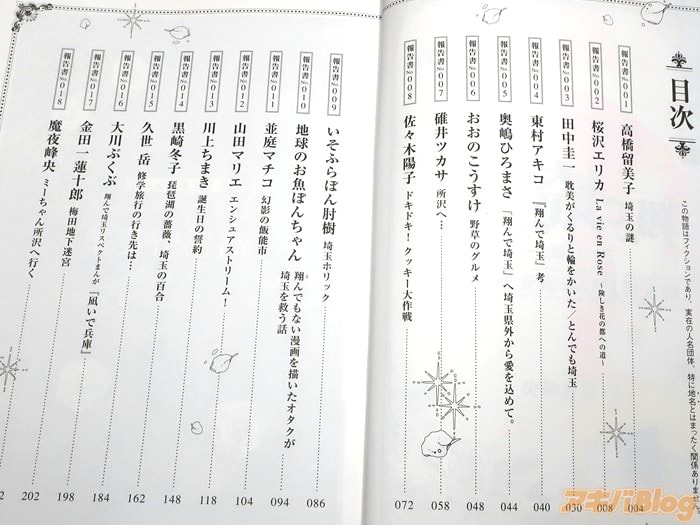 この物語はフィクションであり、実在の人名団体、特に地名とはまったく関係ありませ
目次
報告書No.001 高橋留美子 埼玉の謎 004
報告書No.002 桜沢エリカ La vie en Rose ～険しき花の都への道～ 008
報告書No.003 田中圭一 耽美がくるりと輪をかいた/とんでも埼玉 030
報告書No.004 東村アキコ 『翔んで埼玉』考 040
報告書No.005 奥嶋ひろまさ 「翔んで埼玉」へ埼玉県外から愛を込めて。 044
報告書No.006 おおのこうすけ 野草のグルメ 048
報告書No.007 碓井ツカサ 所沢へ… 058
報告書No.008 佐々木陽子 ドキドキ!クッキー大作戦 072
報告書No.009 いそふらぼん肘樹 埼玉ホリック 086
報告書No.010 地球のお魚ぽんちゃん 翔んでもない漫画を描いたオタクが
埼玉を救う話 094
報告書No.011 並庭マチコ 幻影の飯能市 104
報告書No.012 山田マリエ エンシュアストリーム! 118
報告書No.013 川上ちまき 誕生日の誓約 148
報告書No.014 黒崎冬子 琵琶湖の薔薇、埼玉の百合 162
報告書No.015 久世岳 修学旅行の行き先は… 184
報告書No.016 大川ぶくぶ 翔んで埼玉リスペクトまんが『凪いで兵庫』 198
報告書No.017 金田一蓮十郎 梅田地下迷宮 202
報告書No.018 魔夜峰央 ミーちゃん所沢へ行く 2
アキバBlog